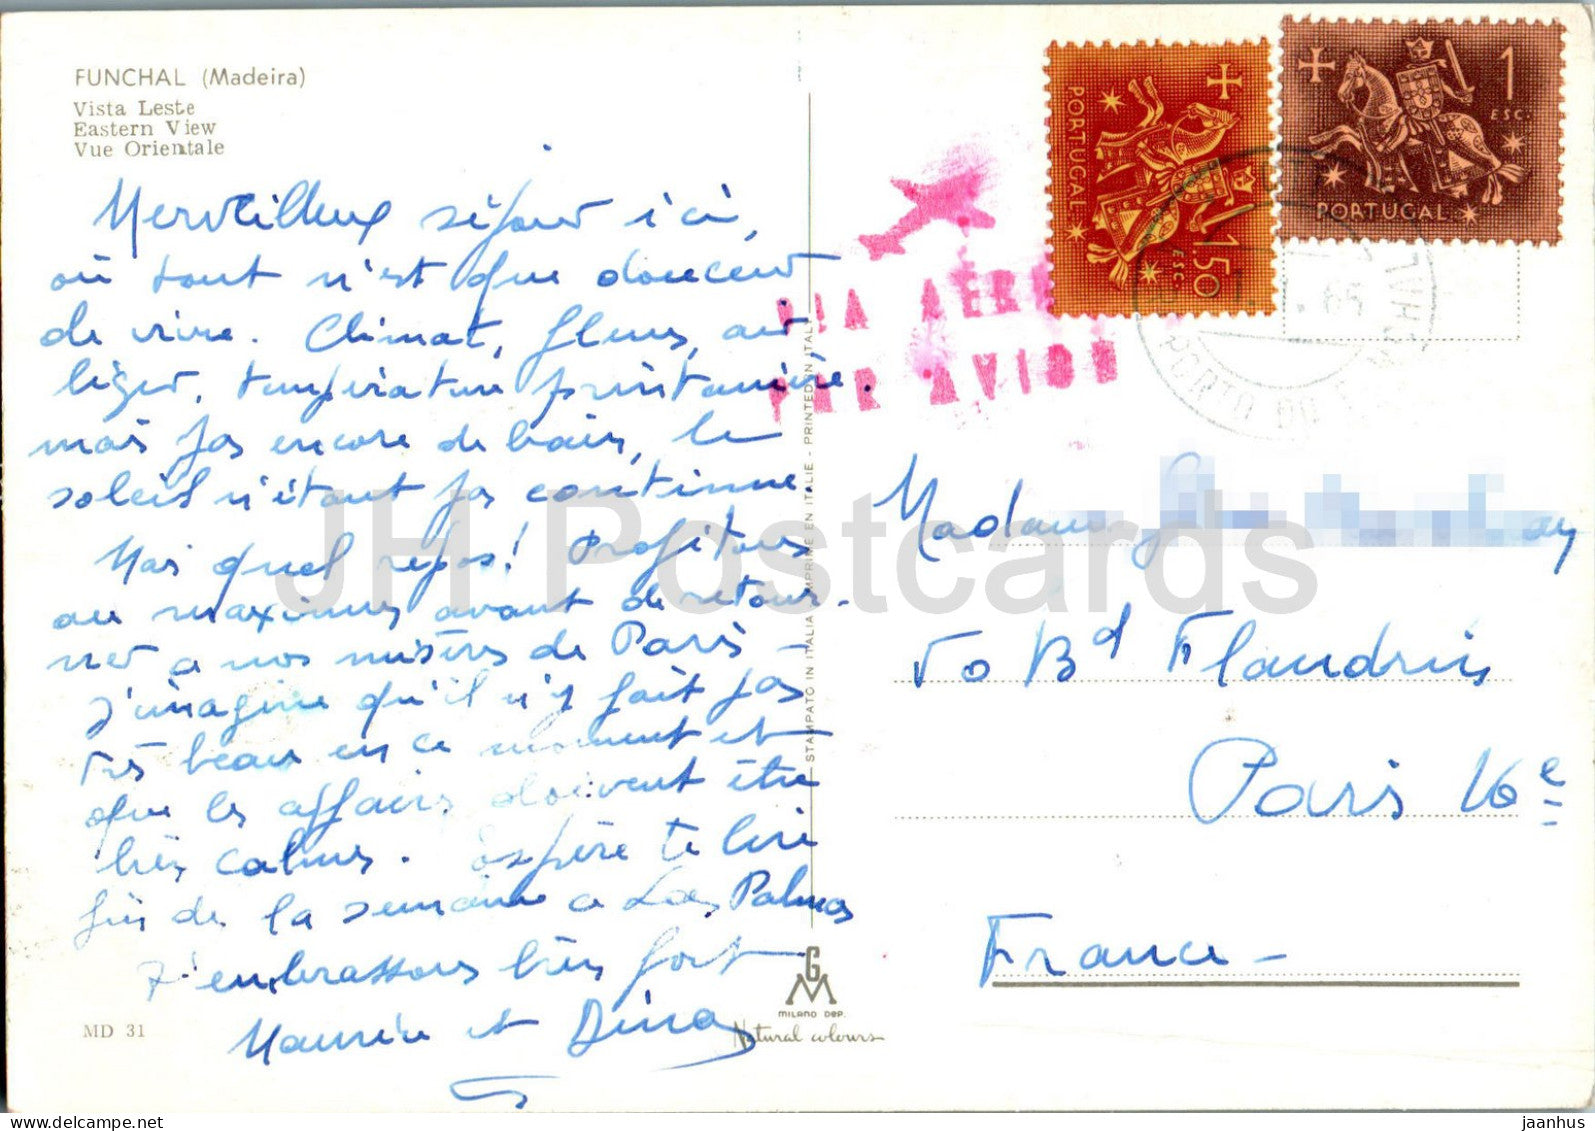 FUNCHAL (Madeira)
Vista Leste
Eastern View
Vue Orientale
Merveilleux séjour ici,
où tout n'est que douceur
de vivre. Climat, fleurs, air
léger, température printanière.
mais pas encore de bain, le
soleil n'étant pas continue.
Mais quel repos! Profitons
au maximum avant de retour-
ner a nos misères de Paris -
J'imagine qu'il n'y fait pas
très beau en ce moment et
que les affaires doivent être
très calmes. Espère te lire
fin de la semaine a Las Palmas
T'embrassons très fort
Maurice et Dina
MD 31
STAMPATO IN ITALIA - IMPRIME EN ITALIE - PRINTED IN ITALY
GM
MILANO DEP.
Natural colours
VIA AÉRE
PAR AVION
PORTUGAL
1$50
ESC.
1
ESC.
PORTUGAL
PORTO DO
65
Madame
50 Bd Flandrin
Paris 16e
France -
JH Postcards
delcampe.net
jaanhus